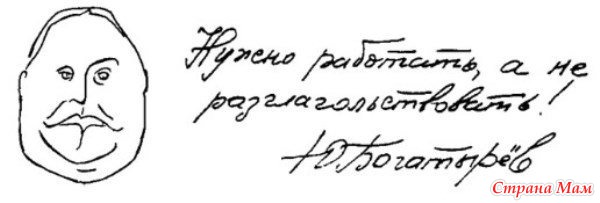 Нужно работать, а не
разглагольствовать!
Ю. Богатырёв
Страна Мам